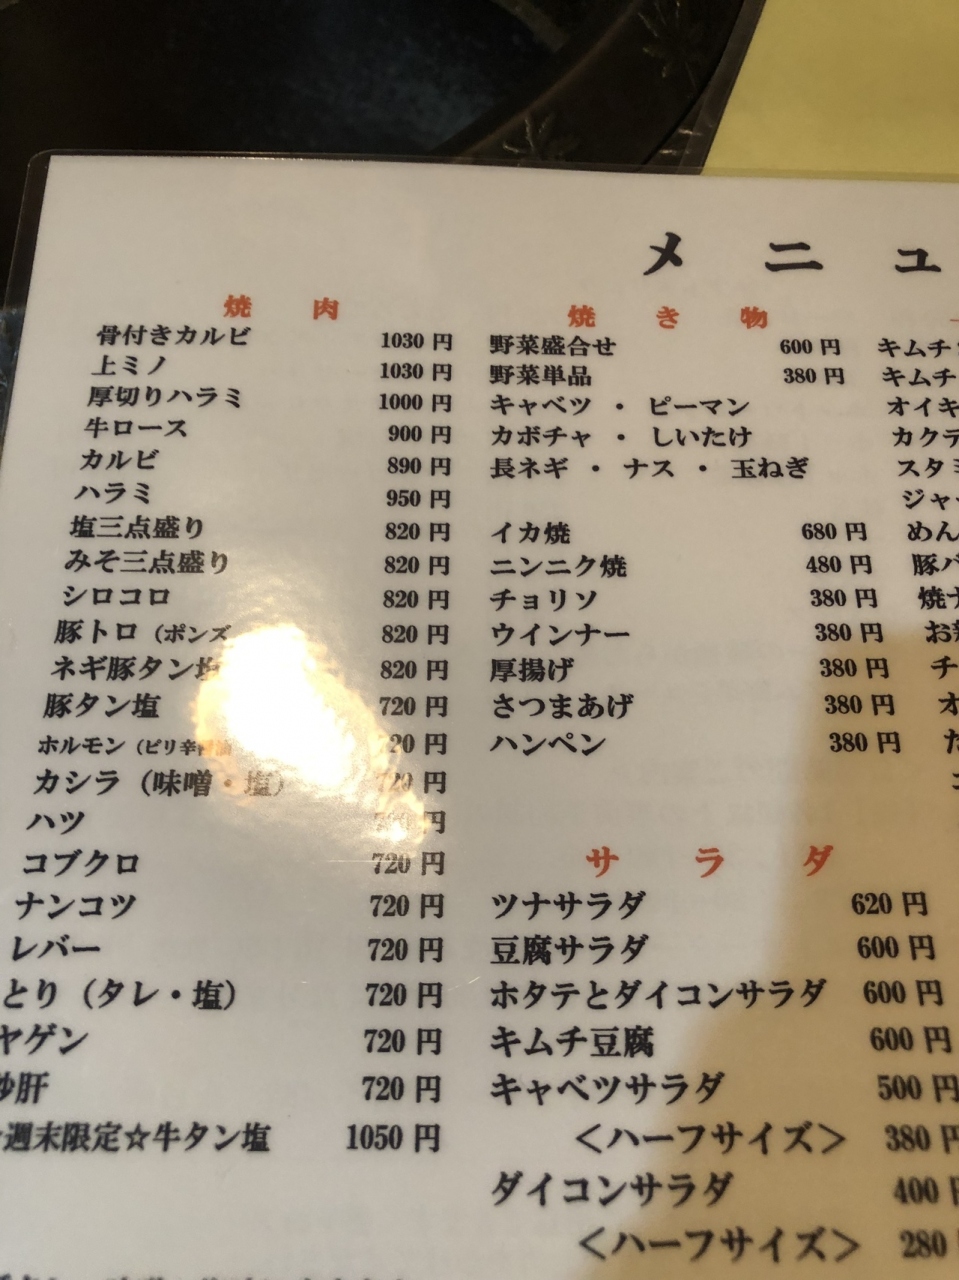 メニュ
焼肉
骨付きカルビ 1030円
上ミノ 1030円
厚切りハラミ 1000円
牛ロース 900円
カルビ 890円
ハラミ 950円
塩三点盛り 820円
みそ三点盛り 820円
シロコロ 820円
豚トロ（ポンズ 820円
ネギ豚タン塩 820円
豚タン塩 720円
ホルモン（ピリ辛 20円
カシラ（味噌・塩） 720円
ハツ 円
コブクロ 720円
ナンコツ 720円
レバー 720円
とり（タレ・塩） 720円
ヤゲン 720円
砂肝 720円
週末限定☆牛タン塩 1050円
焼き物
野菜盛合せ 600円
野菜単品 380円
キャベツ・ピーマン
カボチャ・しいたけ
長ネギ・ナス・玉ねぎ
イカ焼 680円
ニンニク焼 480円
チョリソ 380円
ウインナー 380円
厚揚げ 380円
さつまあげ 380円
ハンペン 380円
サラダ
ツナサラダ 620円
豆腐サラダ 600円
ホタテとダイコンサラダ 600円
キムチ豆腐 600円
キャベツサラダ 500円
＜ハーフサイズ＞ 380円
ダイコンサラダ 400円
＜ハーフサイズ＞ 280
キムチ
キムチ
オイキ
カクテ
スタミ
ジャ
めん
豚バ
焼
お
チ
オ
た